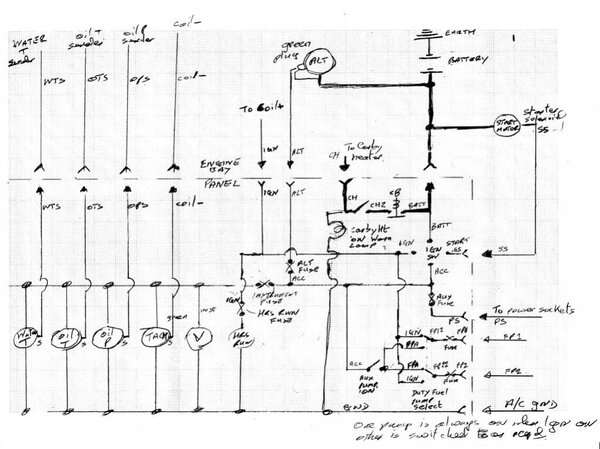 WATER T sender
oil T sender
oil P sender
coil-
green plug
ALT
EARTH
BATTERY
1
WTS
OTS
OPS
coil-
START MOTOR
starter solenoid
SS
To Coil+
IGN
ALT
To Carby heater
CH
ENGINE BAY
PANEL
WTS
OTS
OPS
coil-
IGN
ALT
CH
CH2
CB
BATT
Carby Ht "on" Warn Lamp
BATT
IGN
IGN SW
START SS
SS
ALT FUSE
ACC
ACC
IGN
INSTRUMENT FUSE
HRS RUN FUSE
AUX FUSE
To power sockets
PS
PS
WATER T
S
Oil T
S
Oil P
S
TACH
S
green
INST
V
HRS RUN
IGN
FP12
FP1
PPA
FUSE
FP1
ACC
AUX PUMP ION
FPA
FP12
FP2
IGN
FUSE
FP2
DUTY Fuel PUMP Select
GND
A/C GND
One pump is always on when IGN on
other is switched to as reqd